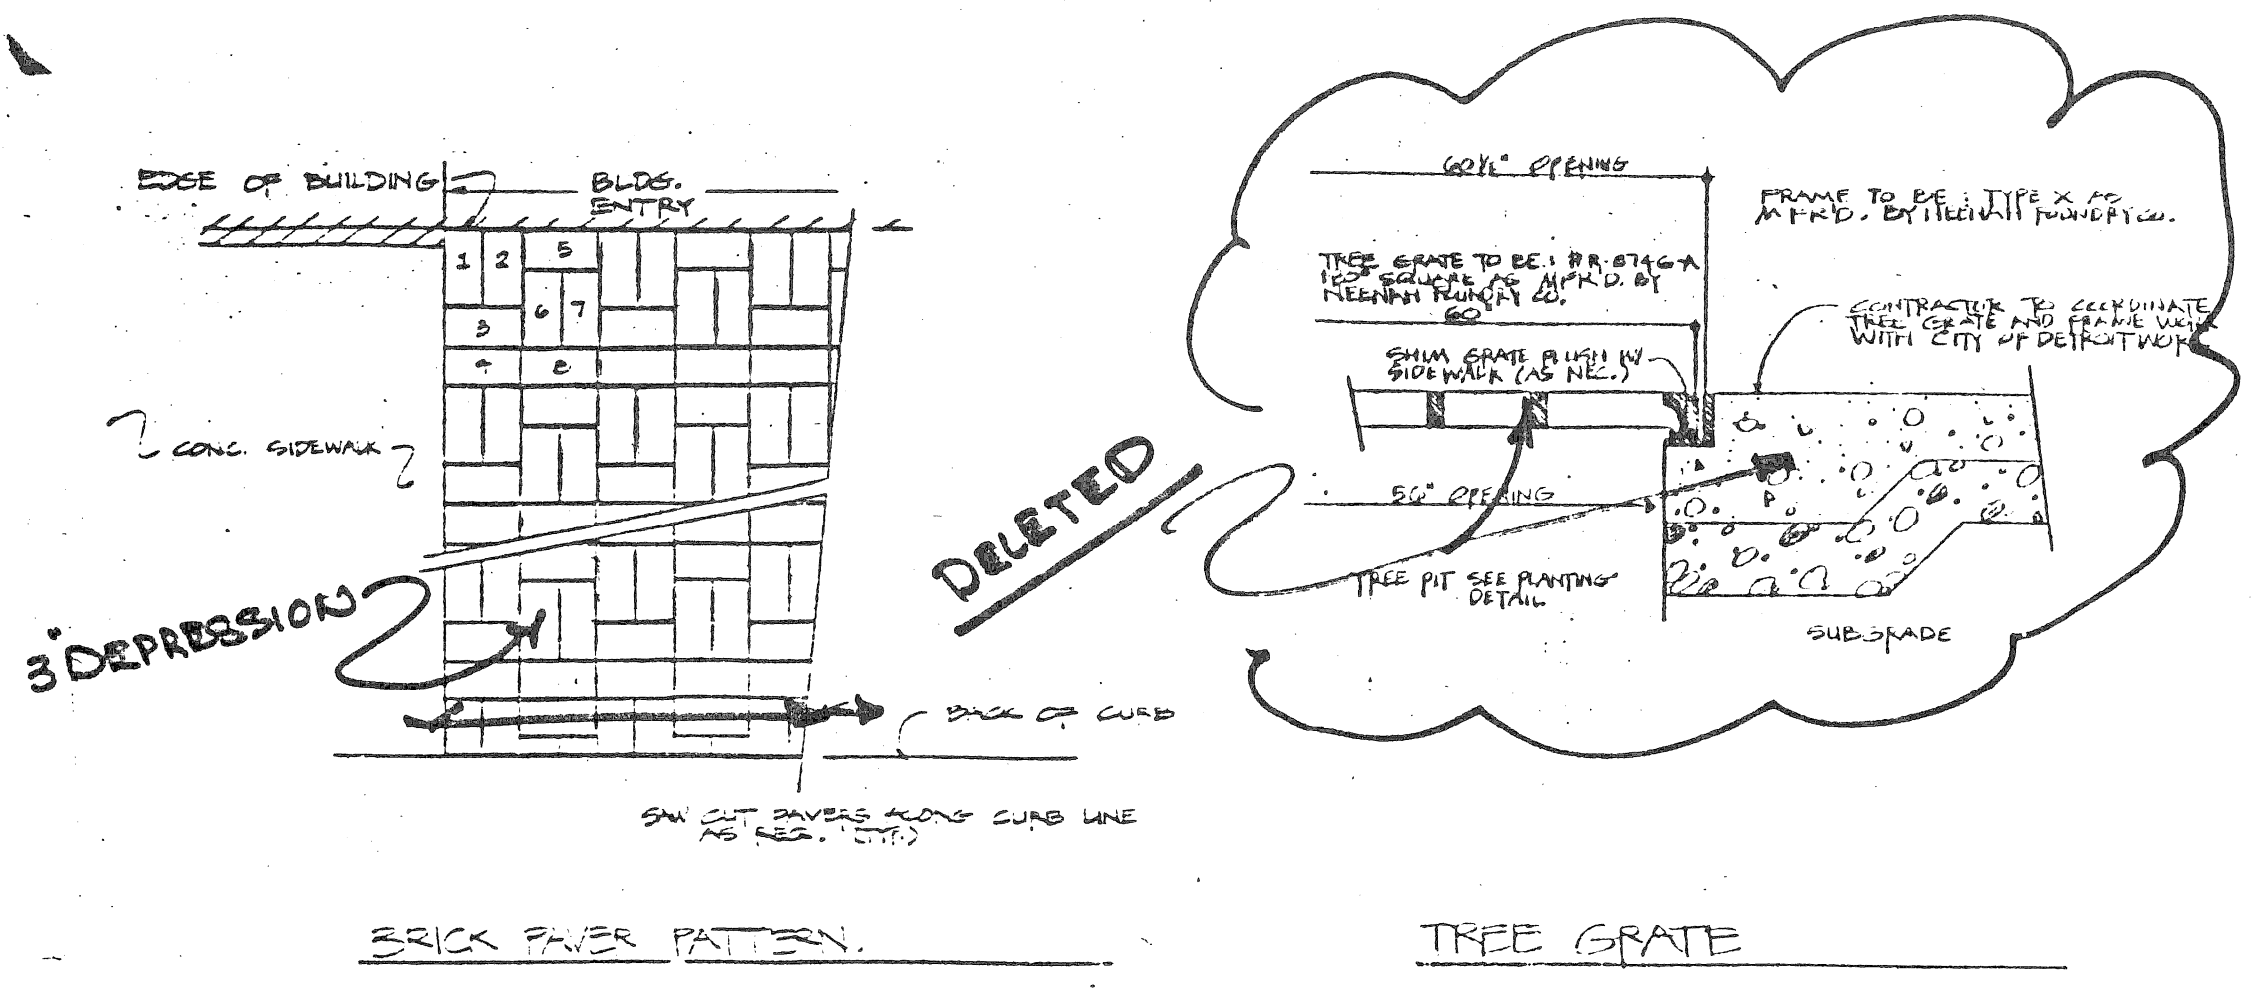 EDGE OF BUILDING
BLDG.
ENTRY
1 2 5
6 7
3
4 8
CONC. SIDEWALK
3" DEPRESSION
BACK OF CURB
SAW CUT PAVERS ALONG CURB LINE
AS REQ. (TYP.)
BRICK PAVER PATTERN.
DELETED
60½" OPENING
FRAME TO BE: TYPE X AS
MFR'D. BY NEENAH FOUNDRY CO.
TREE GRATE TO BE: #R-8746-A
SQUARE AS MFR'D. BY
NEENAH FOUNDRY CO.
60"
CONTRACTOR TO COORDINATE
TREE GRATE AND FRAME WORK
WITH CITY OF DETROIT WORK
SHIM GRATE FLUSH W/
SIDEWALK (AS NEC.)
OPENING
TREE PIT SEE PLANTING
DETAIL
SUBGRADE
TREE GRATE